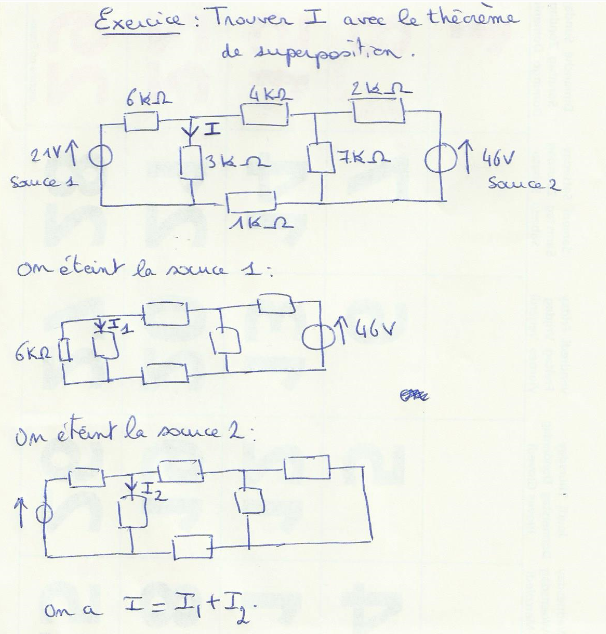 Exercice : Trouver I avec le théorème
de superposition.
6kΩ
4kΩ
2kΩ
I
21V
Source 1
3kΩ
7kΩ
46V
Source 2
1kΩ
On éteint la source 1:
I1
6kΩ
46V
On éteint la source 2:
I2
On a I = I1 + I2.